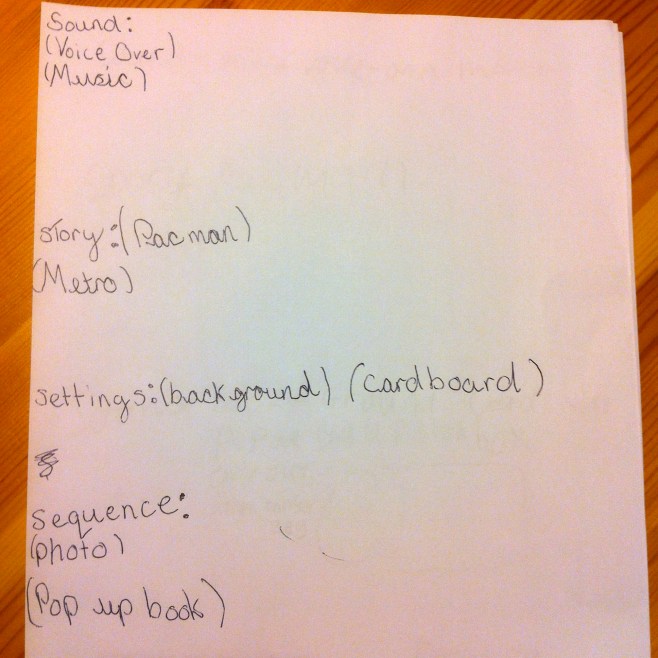 Sound:
(Voice Over)
(Music)
story:(Pacman)
(Metro)
settings:(background) (cardboard)
sequence:
(photo)
(Pop up book)